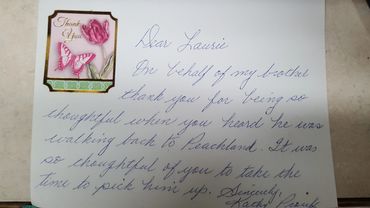 Thank
You
Dear Laurie
On behalf of my brother
thank you for being so
thoughtful when you heard he was
walking back to Peachland. It was
so thoughtful of you to take the
time to pick him up. Sincerely,
Kathy